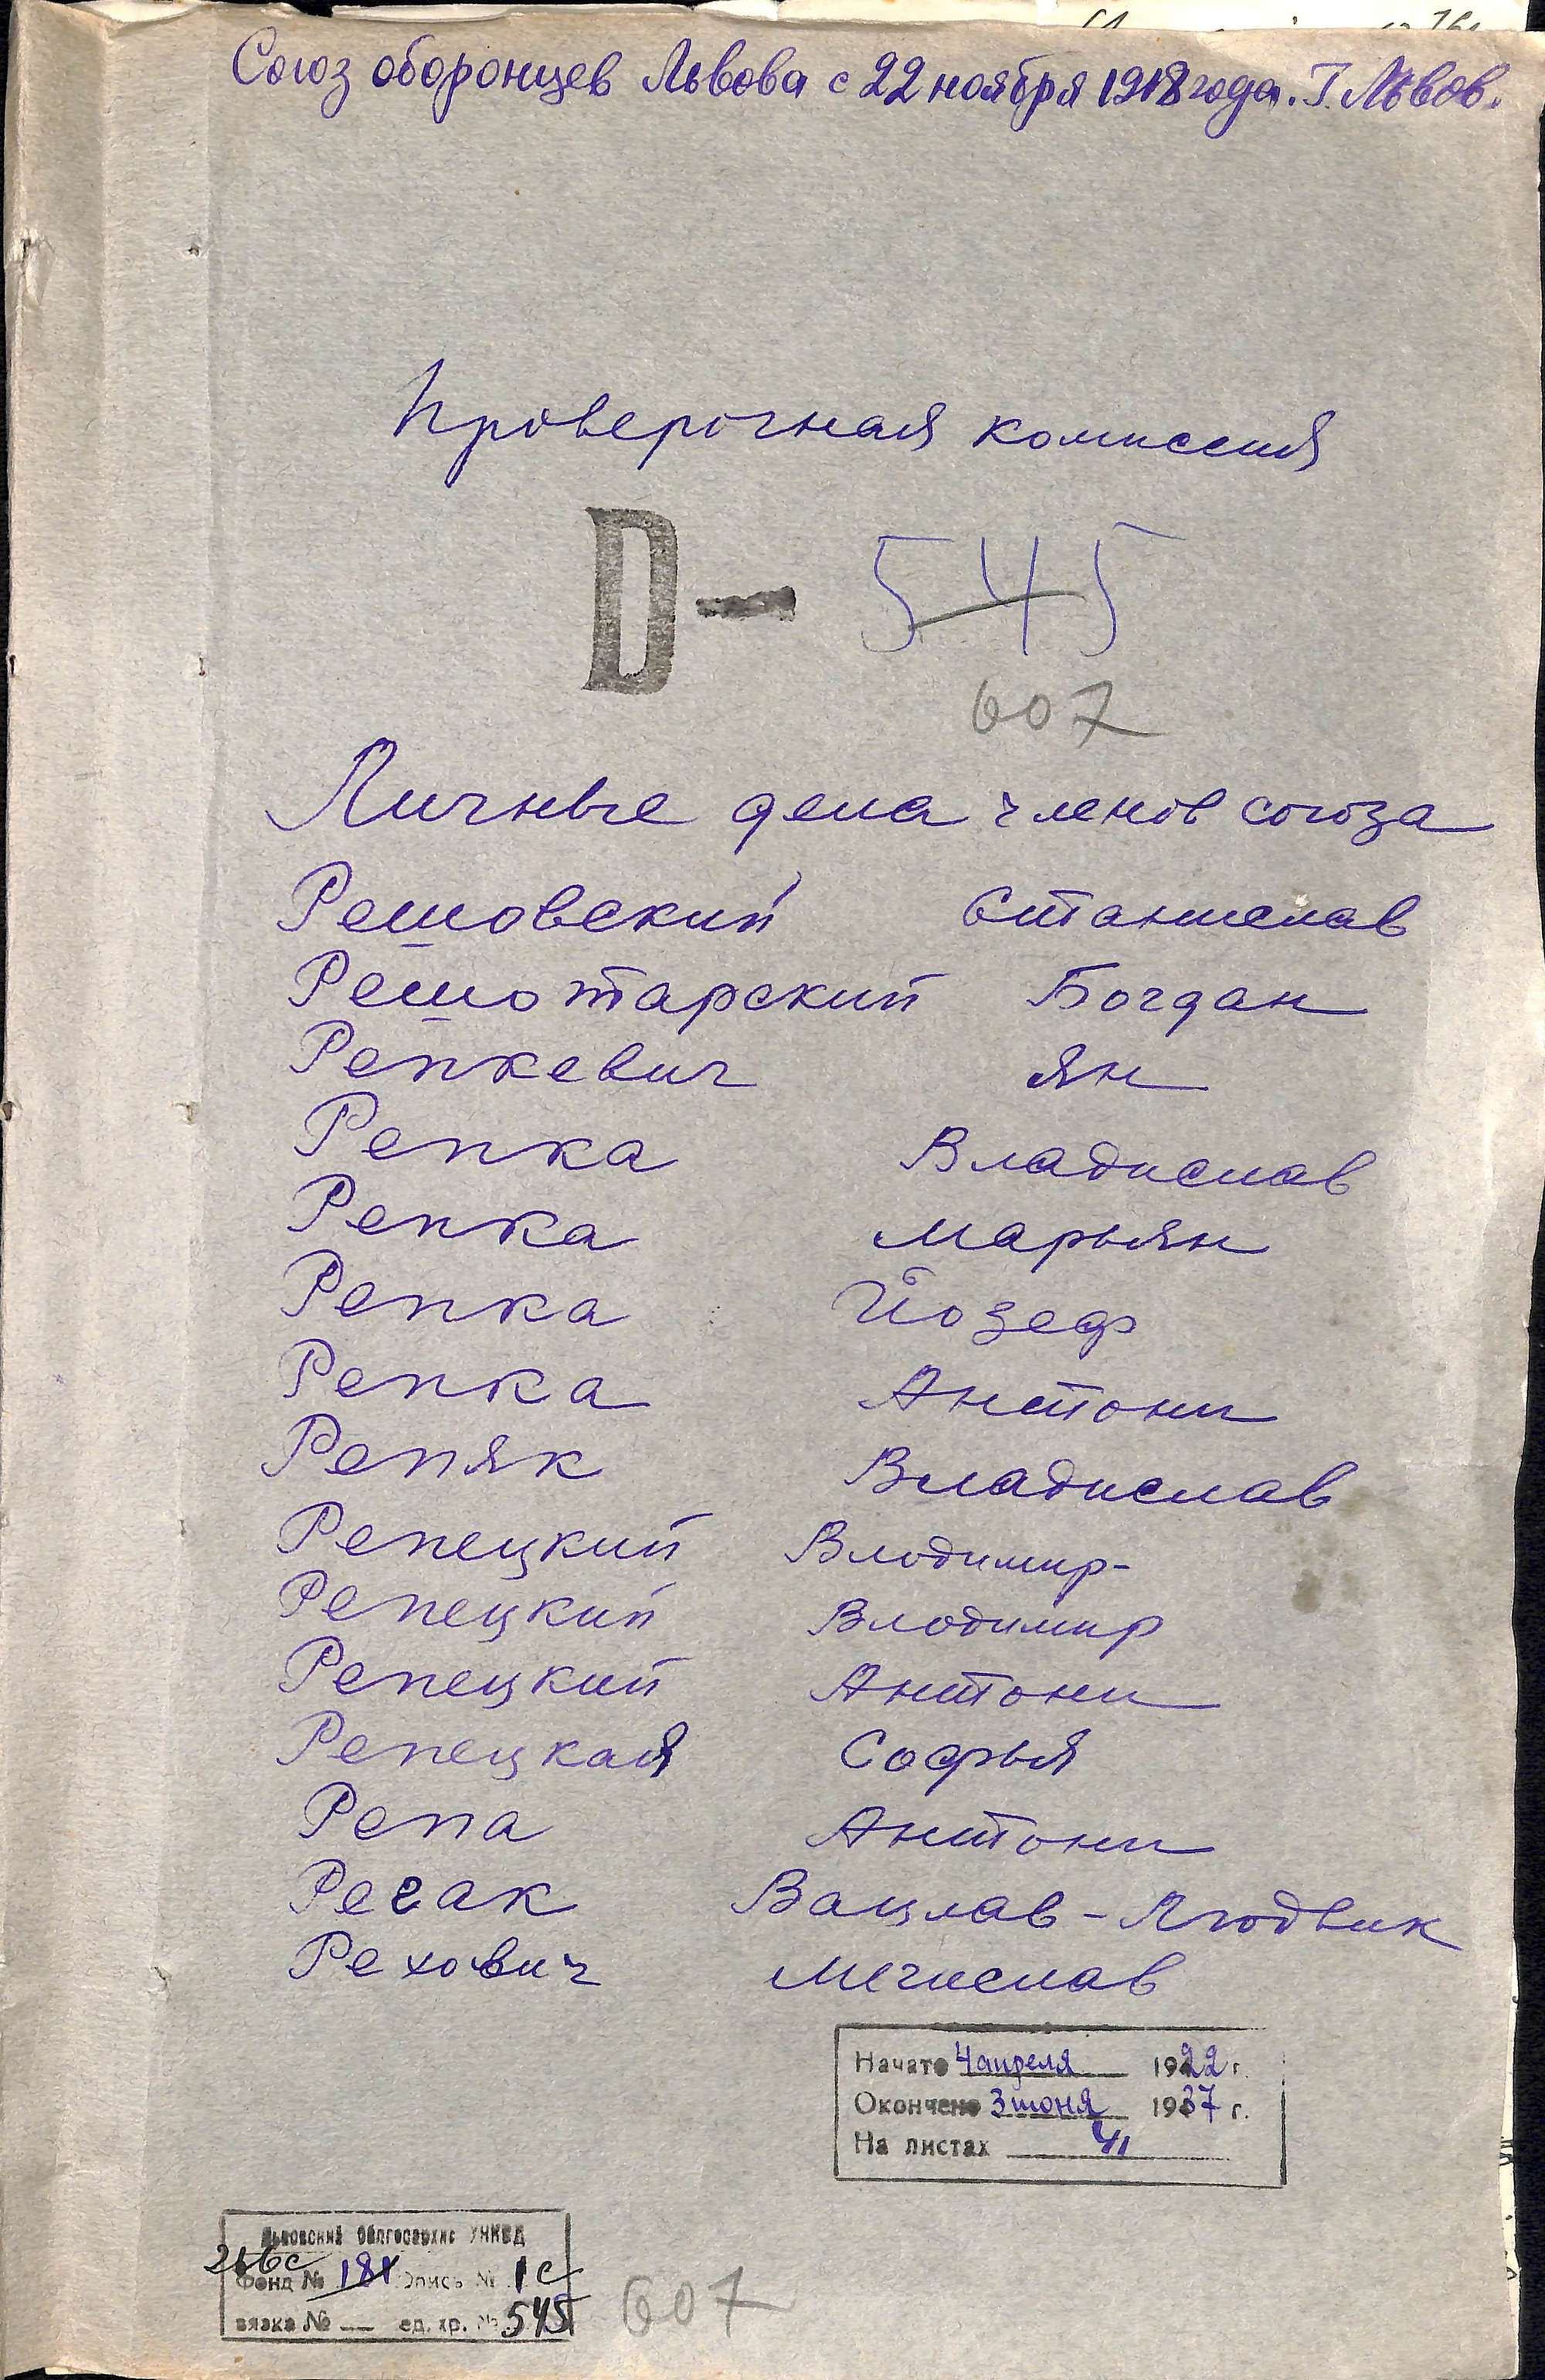 Союз оборонцев Львова с 22 ноября 1918 года. Г. Львов.
Проверочная комиссия
D— 545
607
Личные дела членов союза
Решовский Станислав
Решотарский Богдан
Репкевич Ян
Репка Владислав
Репка Марьян
Репка Йозеф
Репка Антони
Репяк Владислав
Репецкий Влодимир-
Репецкий Влодимир
Репецкий Антони
Репецкая Софья
Репа Антони
Регак Вацлав-Людвик
Рехович Мечислав
Начато 4 апреля 1922 г.
Окончено 3 июня 1937 г.
На листах 41
Львовский Облгосархив УНКВД
266с
Фонд № 181 Опись № 1с
вязка № — ед. хр. № 545
607